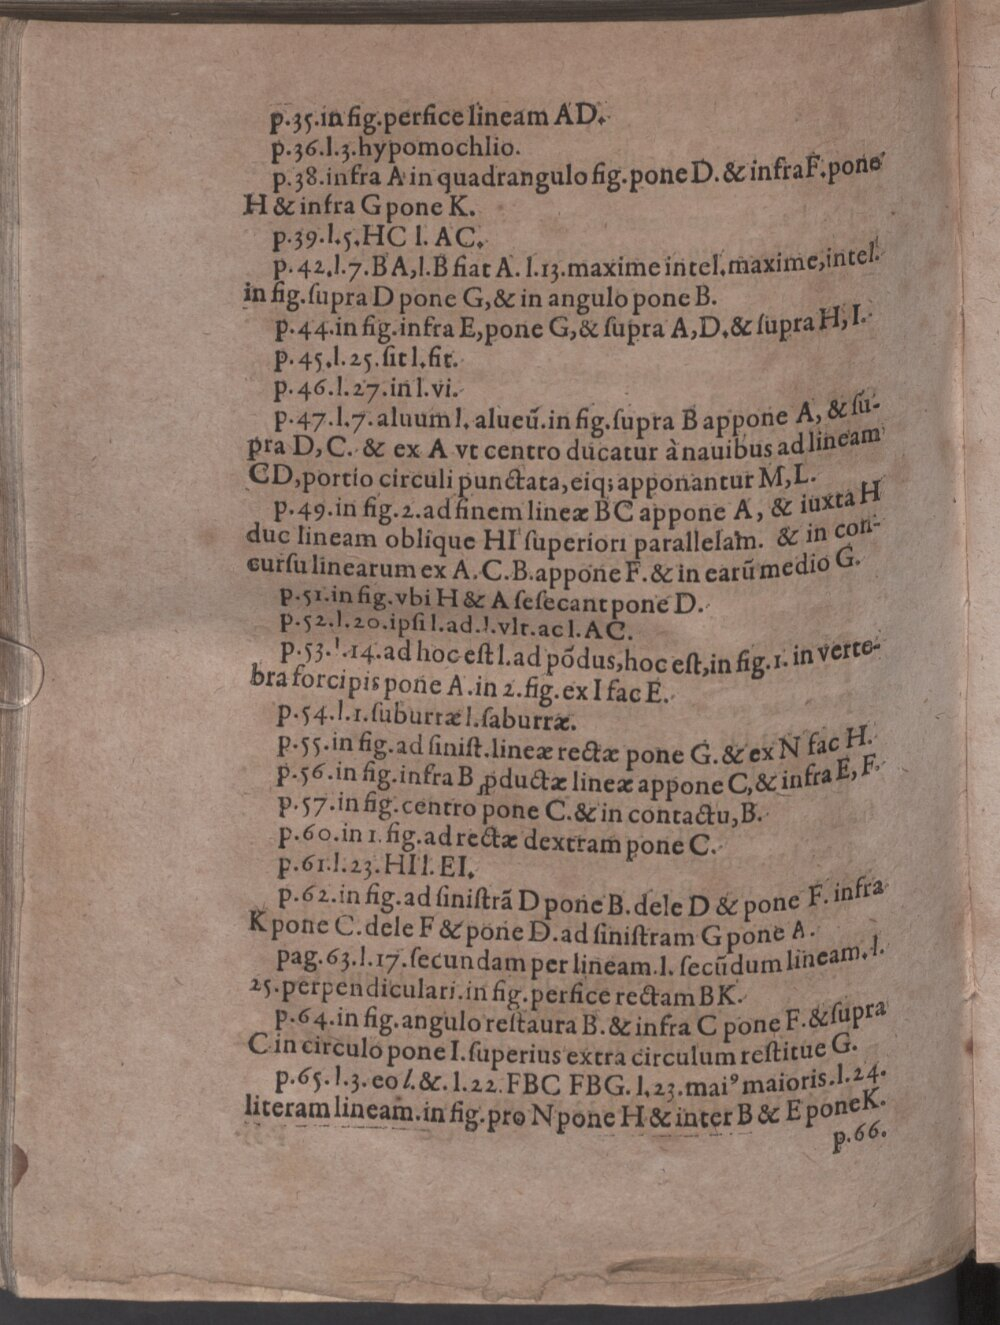 p.35.in fig.perfice lineam AD.
p.36.l.3.hypomochlio.
p.38.infra A in quadrangulo fig.pone D. & infra F.pone
H & infra G pone K.
p.39.l.5.HC l. AC.
p.42.l.7.BA,l.B fiat A. l.13.maxime intel.maxime,intel.
in fig.ſupra D pone G,& in angulo pone B.
p.44.in fig.infra E,pone G,& ſupra A,D.& ſupra H, I.
p.45.l.25.ſit l.fit.
p.46.l.27.in l.vi.
p.47.l.7.aluum l. alueū.in fig.ſupra B appone A, & ſu-
pra D, C. & ex A vt centro ducatur à nauibus ad lineam
CD,portio circuli punctata,eiq; apponantur M, L.
p.49.in fig.2.ad finem lineæ BC appone A, & iuxta H
duc lineam oblique HI ſuperiori parallelam. & in con-
curſu linearum ex A.C.B.appone F.& in earū medio G.
p.51.in fig.vbi H & A ſeſecant pone D.
p.52.l.20.ipſi l.ad.l.vlt.ac l.AC.
p.53.l.14.ad hoc eſt l.ad pōdus,hoc eſt,in fig.1.in verte-
bra forcipis pone A.in 2.fig.ex I fac E.
p.54.l.1.ſuburræ l.ſaburræ.
p.55.in fig.ad ſiniſt.lineæ rectæ pone G.& ex N fac H.
p.56.in fig.infra B ꝓductæ lineæ appone C,& infra E, F.
p.57.in fig.centro pone C.& in contactu,B.
p.60.in 1.fig.ad rectæ dextram pone C.
p.61.l.23.HI l.EI.
p.62.in fig.ad ſiniſtrā D pone B.dele D & pone F.infra
K pone C.dele F & pone D.ad ſiniſtram G pone A.
pag.63.l.17.ſecundam per lineam.l. ſecūdum lineam.l.
25.perpendiculari.in fig.perfice rectam BK.
p.64.in fig.angulo reſtaura B.& infra C pone F.& ſupra
C in circulo pone I.ſuperius extra circulum reſtitue G.
p.65.l.3.eo l.&.l.22.FBC FBG.l.23.maiꝰ maioris.l.24.
literam lineam.in fig.pro N pone H & inter B & E pone K.
p.66.